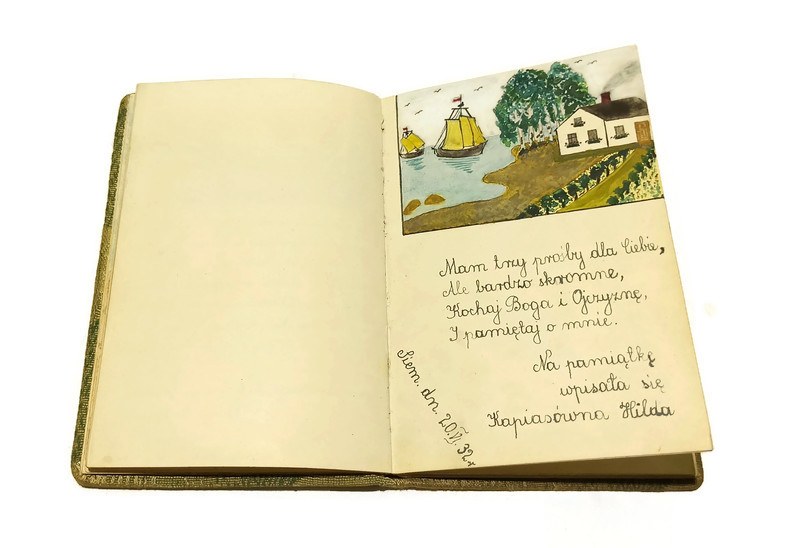 Mam trzy prośby dla Ciebie,
Ale bardzo skromne,
Kochaj Boga i Ojczyznę,
I pamiętaj o mnie.
Na pamiątkę
wpisała się
Kapiasówna Hilda
Siem. dn. 20.VI.32r